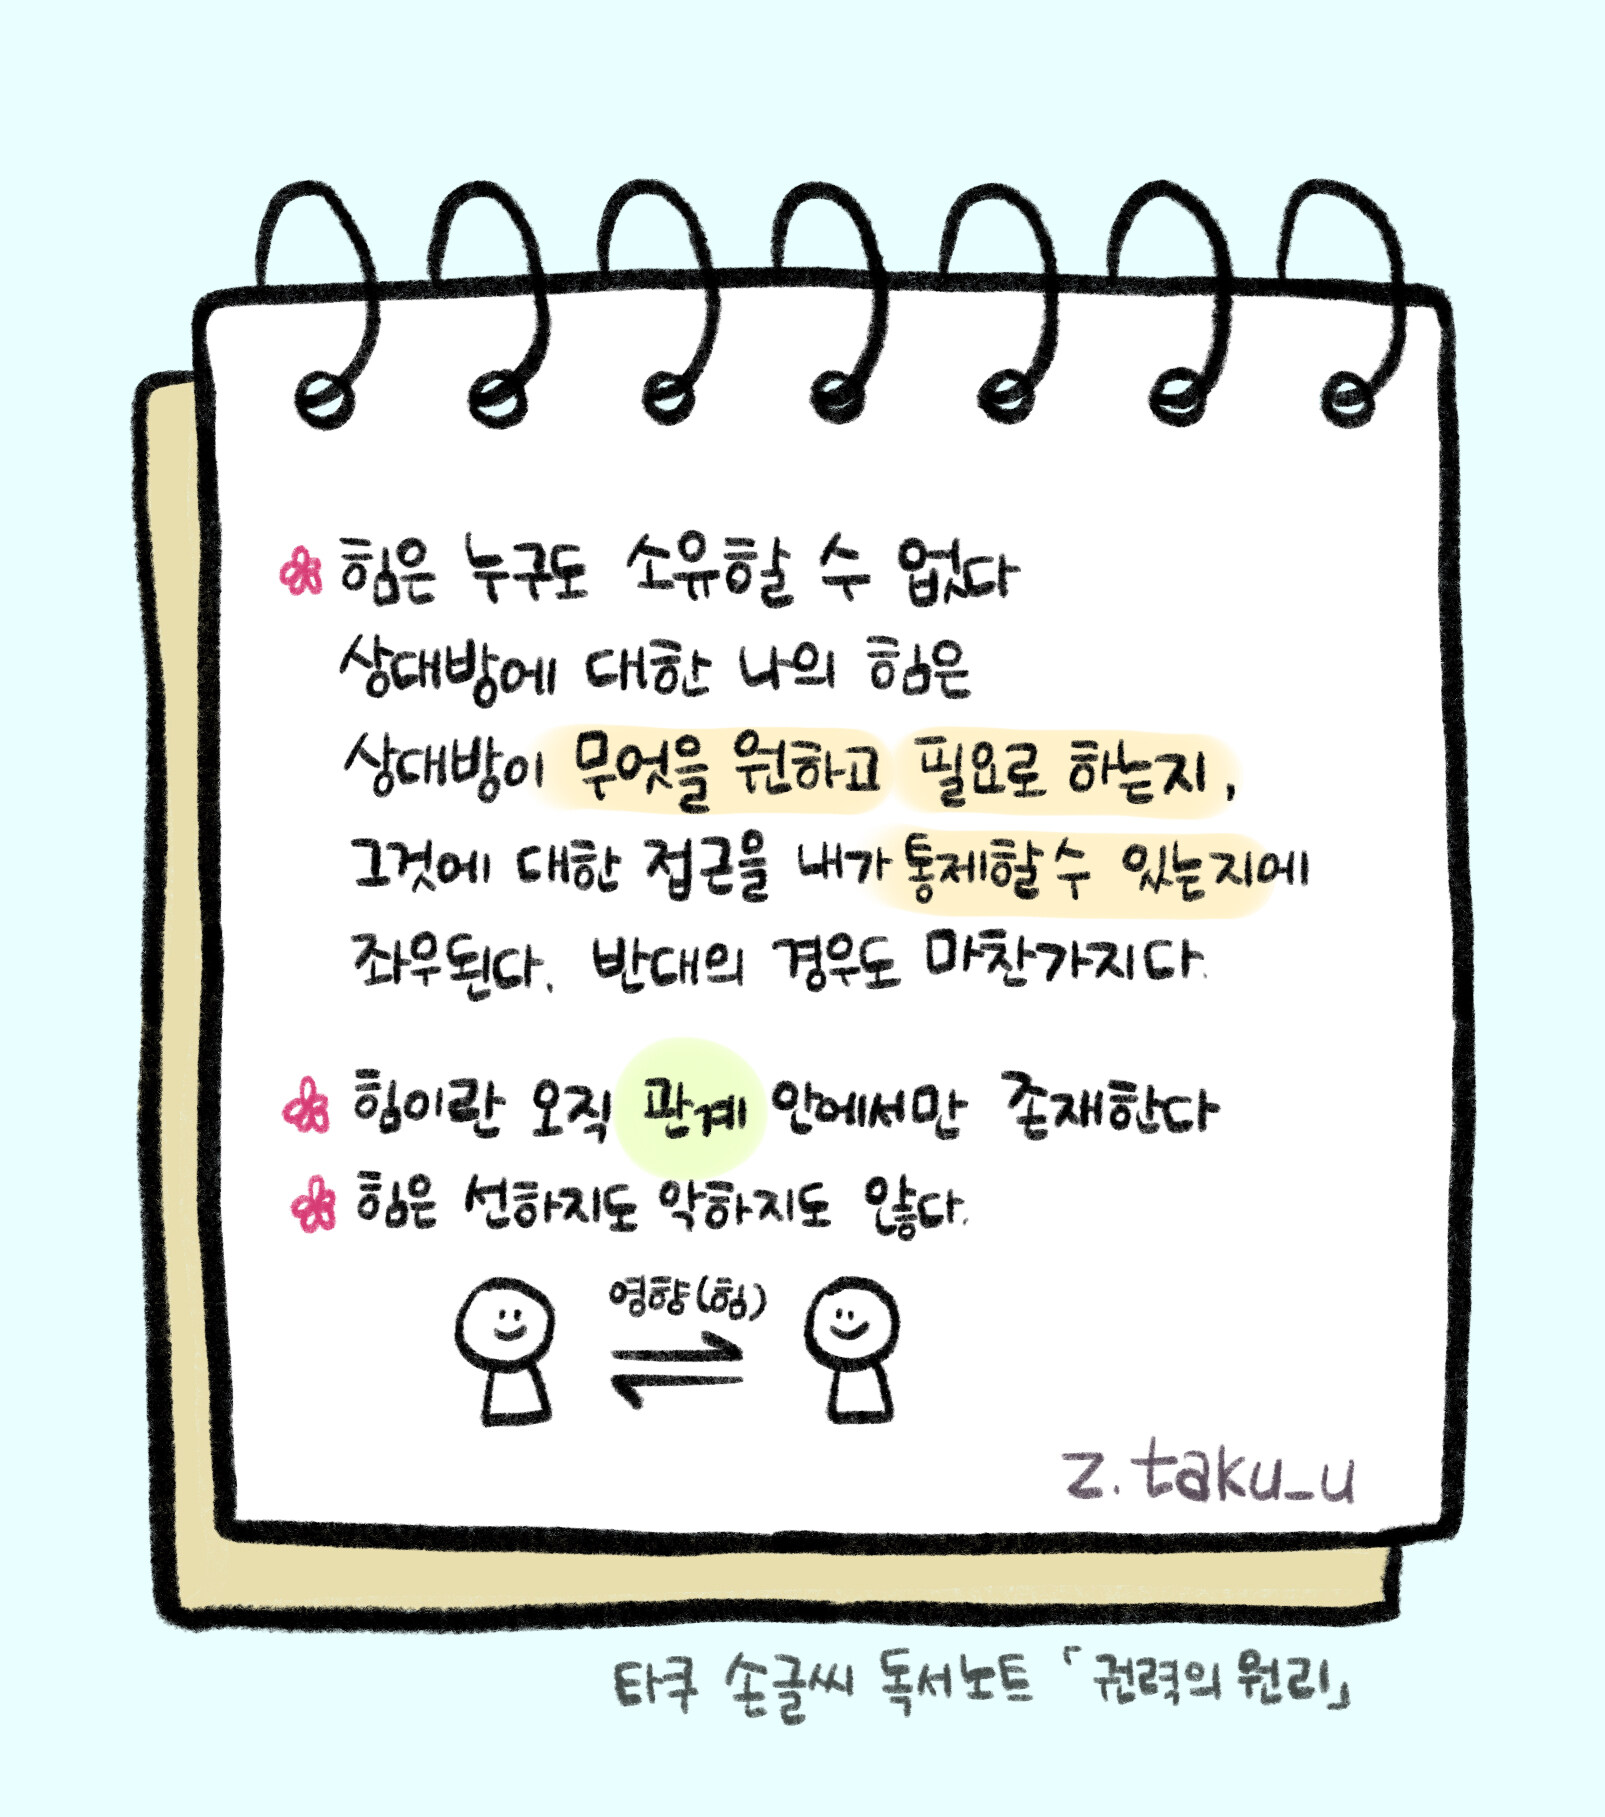 힘은 누구도 소유할 수 없다
상대방에 대한 나의 힘은
상대방이 무엇을 원하고 필요로 하는지,
그것에 대한 접근을 내가 통제할 수 있는지에
좌우된다. 반대의 경우도 마찬가지다.
힘이란 오직 관계 안에서만 존재한다
힘은 선하지도 악하지도 않다.
영향(힘)
z.taku_u
타쿠 손글씨 독서노트 「권력의 원리」